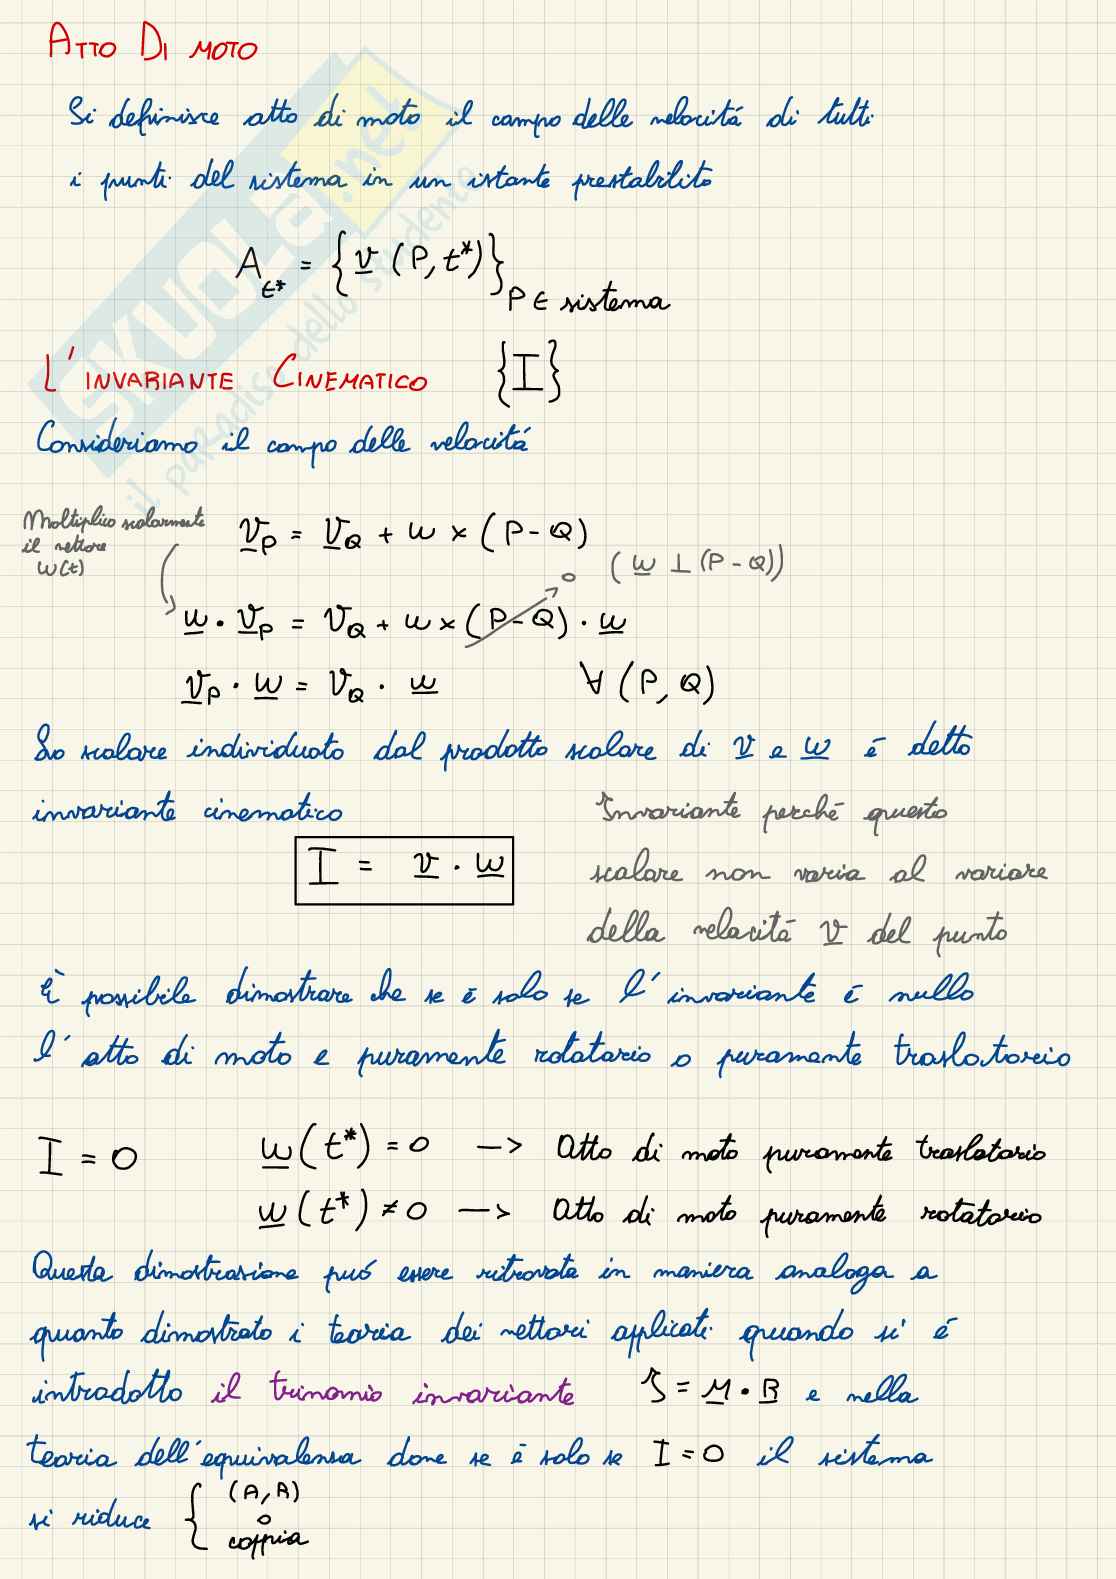 ATTO DI MOTO
Si definisce atto di moto il campo delle velocitá di tutti
i punti del sistema in un istante prestabilito
A_t* = { v (P, t*) }_P ∈ sistema
L' INVARIANTE CINEMATICO {I}
Consideriamo il campo delle velocitá
Moltiplico scalarmente
il vettore
w(t)
v_P = v_Q + w × (P - Q)
0 (w ⊥ (P - Q))
w · v_P = v_Q + w × (P - Q) · w
v_P · w = v_Q · w ∀ (P, Q)
Lo scalare individuato dal prodotto scalare di v e w é detto
invariante cinematico
I = v · w
Invariante perché questo
scalare non varia al variare
della velocitá v del punto
È possibile dimostrare che se é solo se l'invariante é nullo
l'atto di moto e puramente rotatorio o puramente traslatorio
I = 0 w(t*) = 0 —> Atto di moto puramente traslatorio
w(t*) ≠ 0 —> Atto di moto puramente rotatorio
Questa dimostrazione puó essere ritrovata in maniera analoga a
quanto dimostrato i teoria dei vettori applicati quando si é
introdotto il trinomio invariante I = M · R e nella
teoria dell'equivalenza dove se é solo se I = 0 il sistema
si riduce { (A, R)
o
coppia
SKUOLA.net
il paradiso dello studente